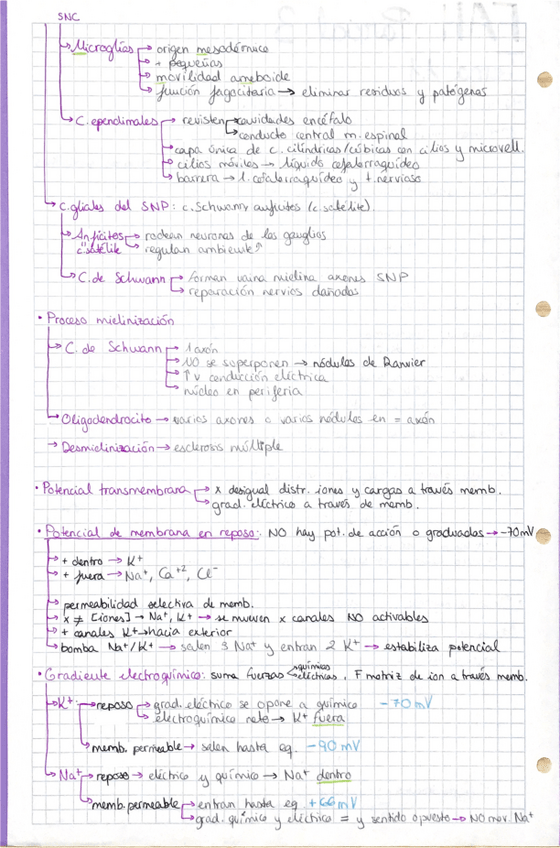 SNC
→ Microglías → origen mesodérmico
→ + pequeñas
→ movilidad ameboide
→ función fagocitaria → eliminar residuos y patógenos
→ C. ependimales → revisten → cavidades encéfalo
→ conducto central m. espinal
→ capa única de c. cilíndricas/cúbicas con cilios y microvell.
→ cilios móviles → líquido cefalorraquídeo
→ barrera → l. cefalorraquídeo y t. nervioso
→ C. gliales del SNP: c. Schwann anficitos (c. satélite)
→ Anficitos → rodean neuronas de los ganglios
c. satélite → regulan ambiente
→ C. de Schwann → forman vaina mielina axones SNP
→ reparación nervios dañados
• Proceso mielinización
→ C. de Schwann → 1 axón
→ NO se superponen → nódulos de Ranvier
→ ↑ v conducción eléctrica
→ núcleo en periferia
→ Oligodendrocito → varios axones o varios nódulos en = axón
→ Desmielinización → esclerosis múltiple
• Potencial transmembrana → x desigual distr. iones y cargas a través memb.
→ grad. eléctrico a través de memb.
• Potencial de membrana en reposo: NO hay pot. de acción o graduados → -70mV
→ + dentro → K+
→ + fuera → Na+, Ca+2, Cl-
→ permeabilidad selectiva de memb.
→ x ≠ [iones] → Na+, K+ → se mueven x canales NO activables
→ + canales K+ → hacia exterior
→ bomba Na+/K+ → salen 3 Na+ y entran 2 K+ → estabiliza potencial
• Gradiente electroquímico: suma fuerzas químicas eléctricas, F motriz de ion a través memb.
→ K+: → reposo → grad. eléctrico se opone a químico -70 mV
→ electroquímico neto → K+ fuera
→ memb. permeable → salen hasta eq. -90 mV
→ Na+ → reposo → eléctrico y químico → Na+ dentro
→ memb. permeable → entran hasta eq +66 mV
→ grad. químico y eléctrico = y sentido opuesto → NO mov. Na+